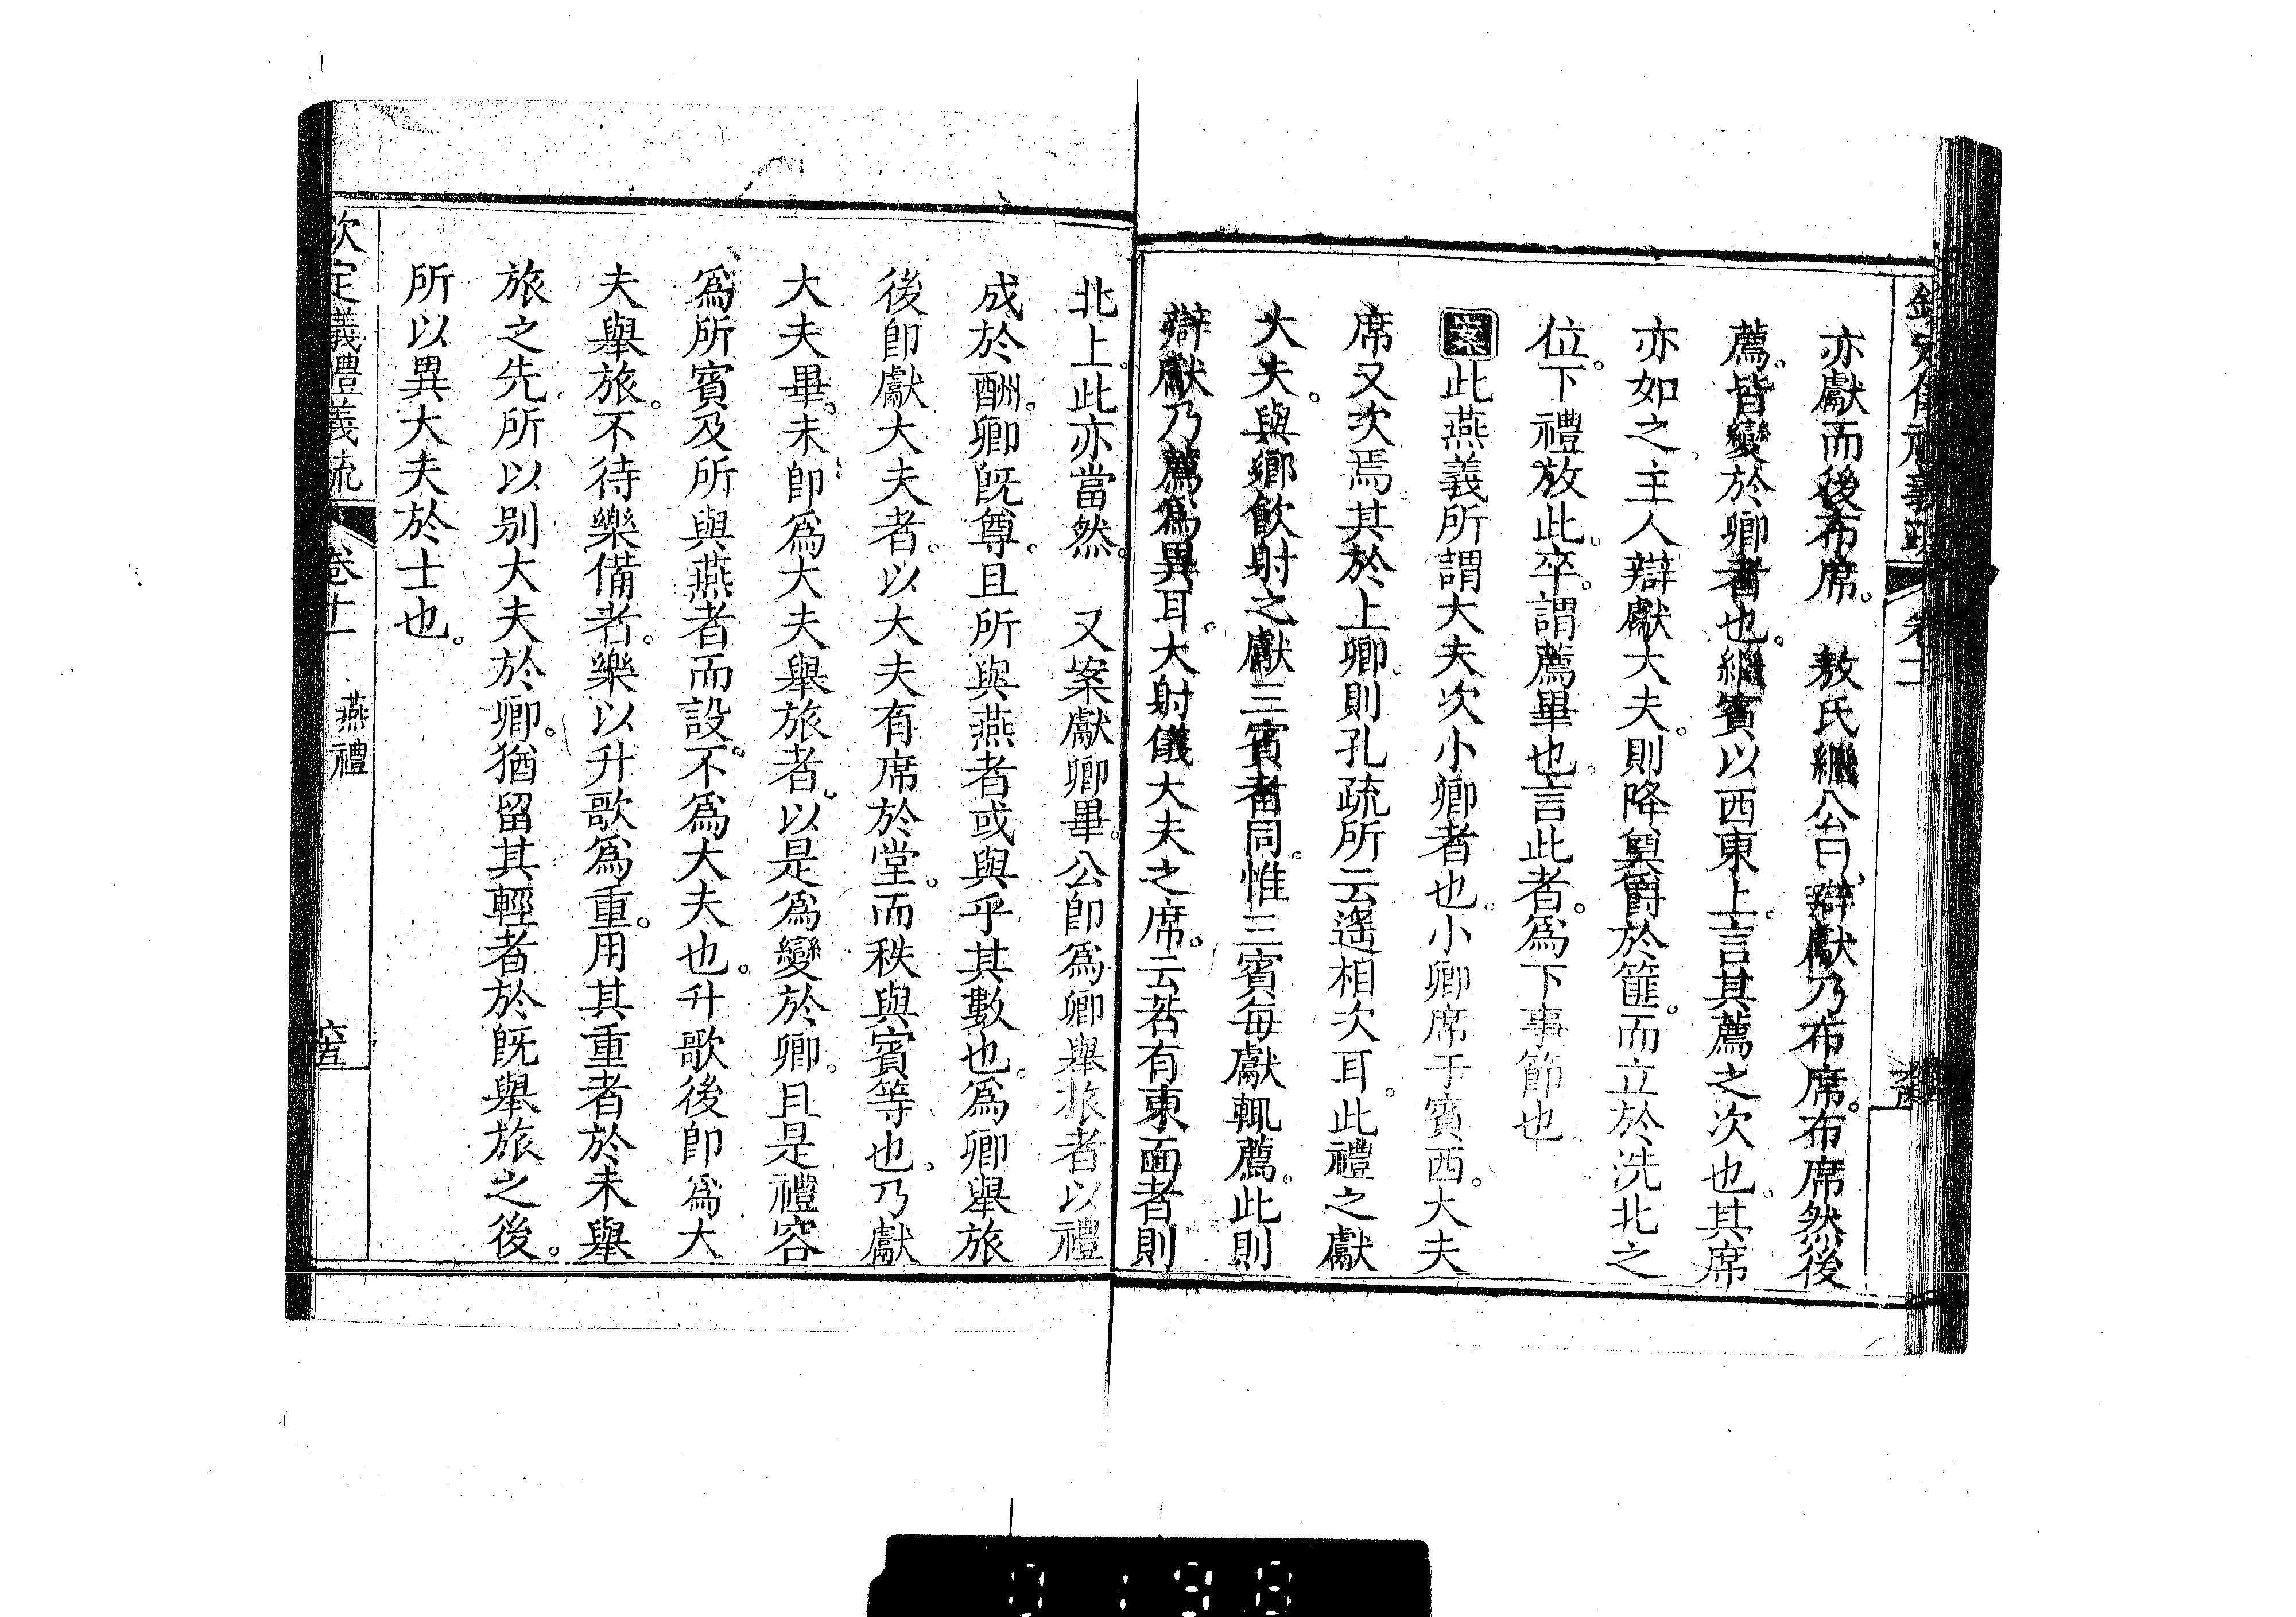 亦獻而後布席。　敖氏繼公曰。辯獻乃布席。布席然後
薦。皆變於卿者也。繼賓以西東上。言其薦之次也。其席
亦如之。主人辯獻大夫。則降奠爵於篚。而立於洗北之
位。下禮放此。卒。謂薦畢也。言此者。為下事節也
案此燕義所謂大夫次小卿者也。小卿席于賓西。大夫
席又次焉。其於上卿。則孔疏所云遙相次耳。此禮之獻
大夫。與鄉飲射之獻三賓者同。惟三賓每獻輒薦。此則
辯獻乃薦為異耳。大射儀大夫之席。云若有東面者則
北上。此亦當然。　又案獻卿畢。公即為卿舉旅者以禮
成於酬。卿既尊。且所與燕者或與乎其數也。為卿舉旅
後即獻大夫者。以大夫有席於堂。而秩與賓等也。乃獻
大夫畢。未即為大夫舉旅者。以是為變於卿。且是禮容
為所賓及所與燕者而設。不為大夫也。升歌後即為大
夫舉旅。不待樂備者。樂以升歌為重。用其重者於未舉
旅之先。所以別大夫於卿。猶留其輕者於既舉旅之後。
所以異大夫於士也。
定義禮義疏　卷十一　燕禮